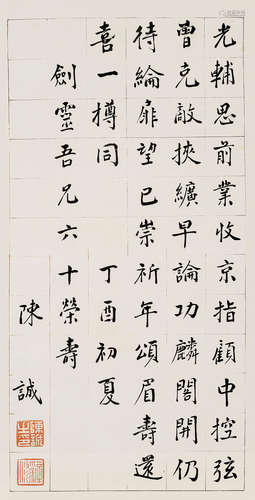 光輔思前業收京指顧中控弦
曾克敵挾纊早論功麟閣開仍
待綸扉望已崇祈年頌眉壽還
喜一樽同　丁酉初夏
劍靈吾兄六十榮壽
陳誠